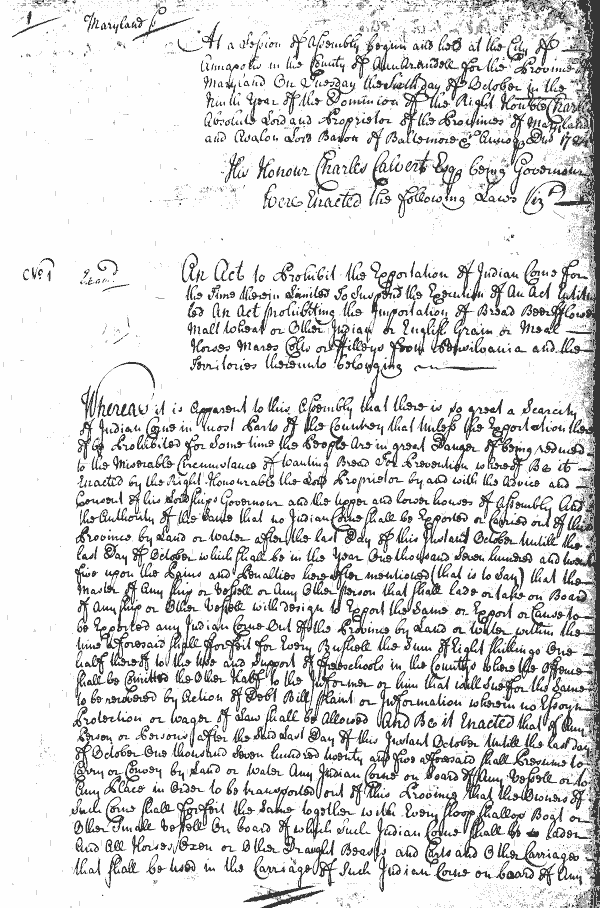 1
Maryland ss
At a Session of Assembly begun and held at the City of
Annapolis in the County of Ann Arundell for the Province of
Maryland On Tuesday the Sixth day of October in the
Ninth Year of the Dominion of the Right Honble Charles
Absolute Lord and Proprietor of the Provinces of Maryland
and Avalon Lord Baron of Baltemore &c Annoq Dni 1724
His Honour Charles Calvert Esqr being Governour
Were Enacted the following Laws Vizt
CNo 1
Exam'd
An Act to Prohibit the Exportation of Indian Corne for
the Time therein Limited To Suspend the Execution of An Act Entitu
led An Act prohibiting the Importation of Bread Beer flower
Malt wheat or Other Indian or English Grain or Meal
Horses Mares Colts or filleys from Pensilvania and the
Territories thereunto belonging
Whereas it is Apparent to this Assembly that there is so great a Scarcity
of Indian Corne in most Parts of the Countrey that Unless the Exportation there
of be Prohibited for Some time the People Are in great Danger of being reduced
to the Miserable Circumstance of wanting Bread For Prevention whereof Be it
Enacted by the Right Honourable the Lord Proprietor by and with the Advice and
Consent of his Lordships Governour and the upper and lower houses of Assembly And
the Authority of the Same that no Indian Corne shall be Exported or Carried out of this
Province by Land or water after the last Day of this Instant October Untill the
last Day of October which shall be in the Year One thousand Seven hundred and twenty
five upon the Pains and Penalties hereafter mentioned (that is to Say) that the
Master of Any ship or Vessell or Any Other Person that shall lade or take on Board
of Any ship or Other Vessell with design to Export the Same or Export or Cause to
be Exported any Indian Corne Out of the Province by Land or Water within the
time aforesaid shall forfeit for Every Bushell the Sum of Eight shillings One
half thereof to the Use and Support of freeschools in the Countys where the Offence
shall be Comitted the Other Half to the Informer or him that will sue for the Same
to be recovered by Action of Debt Bill Plaint or Information wherein no Essoyn
Protection or wager of Law shall be Allowed And Be it Enacted that if Any
Person or Persons after the Said Last Day of this Instant October Untill the last day
of October One thousand Seven hundred twenty and five aforesaid shall Presume to
Carry or Convey by Land or Water Any Indian Corne on board of Any Vessell or to
Any Place in Order to be transported out of this Province that the Owners of
Such Corne shall forfeit the Same together with Every sloop shallop Boat or
Other Small Vessell On board of which Such Indian Corne shall be laden
And All Horses Oxen or Other Draught Beasts and Carts and Other Carriages
that shall be used in the Carriage of Such Indian Corne on board of Any